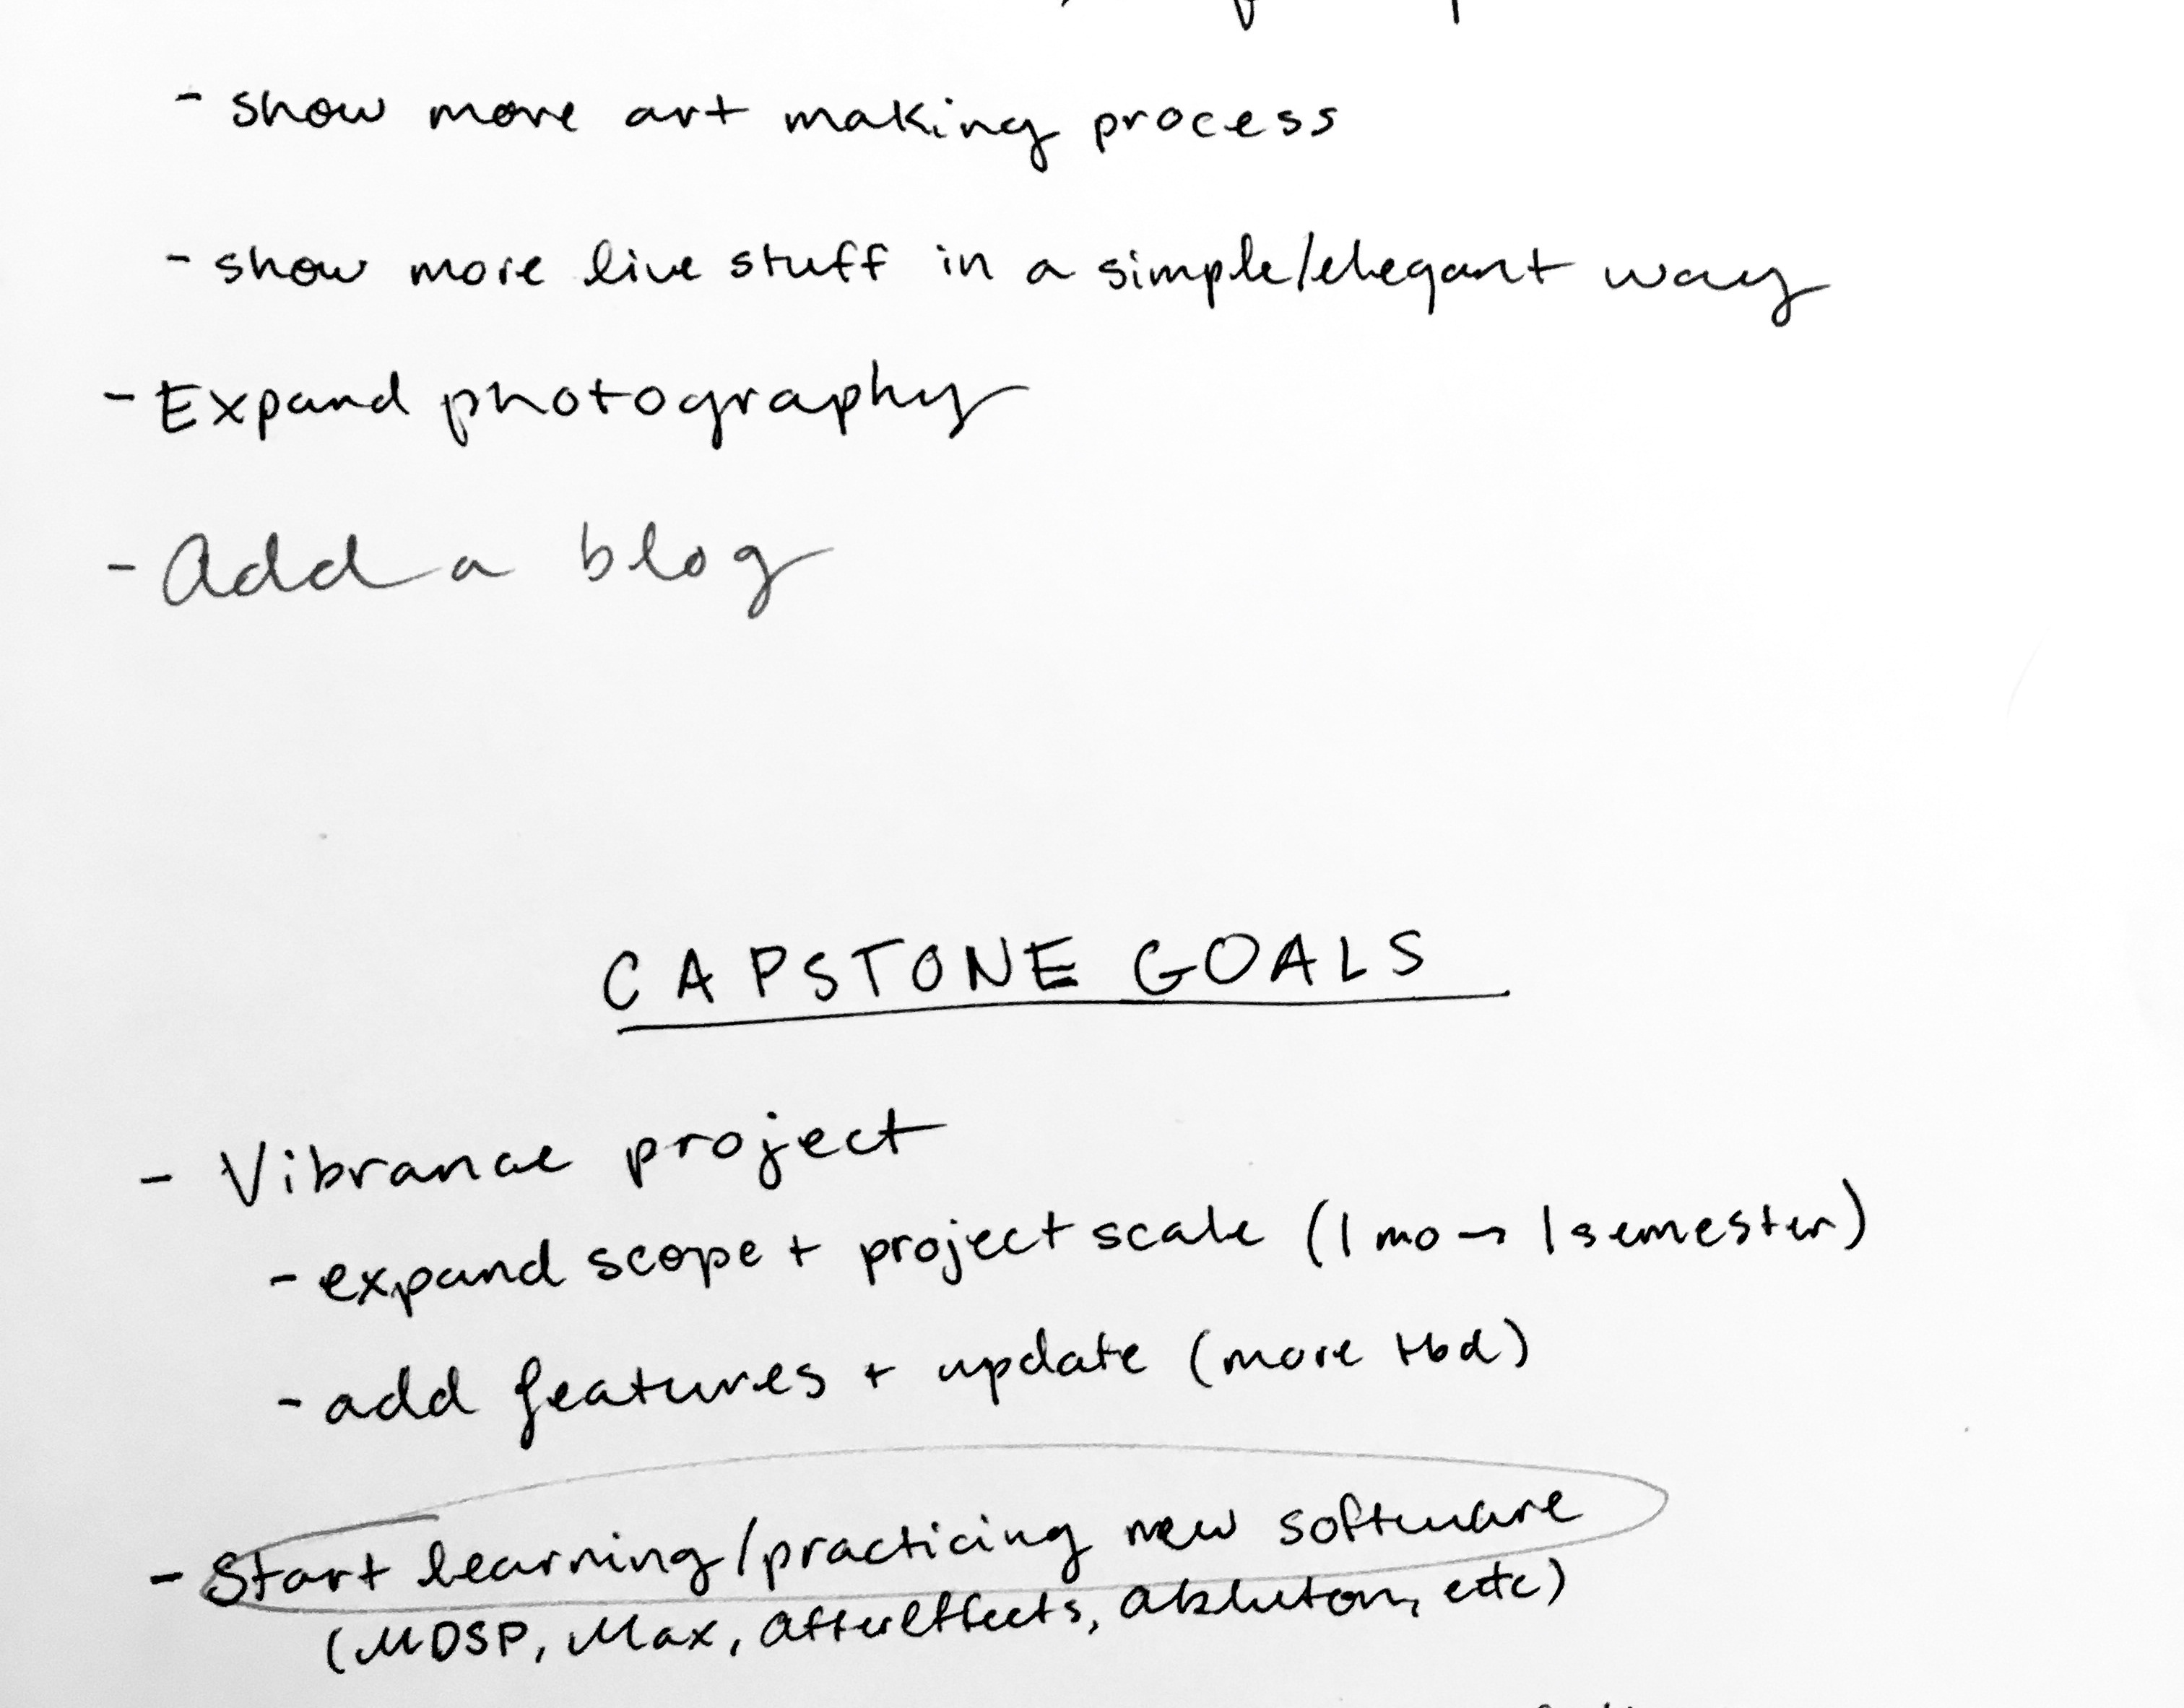 - show more art making process
- show more live stuff in a simple/elegant way
- Expand photography
- Add a blog
CAPSTONE GOALS
- Vibrance project
- expand scope + project scale (1 mo → 1 semester)
- add features + update (more tbd)
- Start learning/practicing new software
(MDSP, Max, AfterEffects, Abluton, etc)